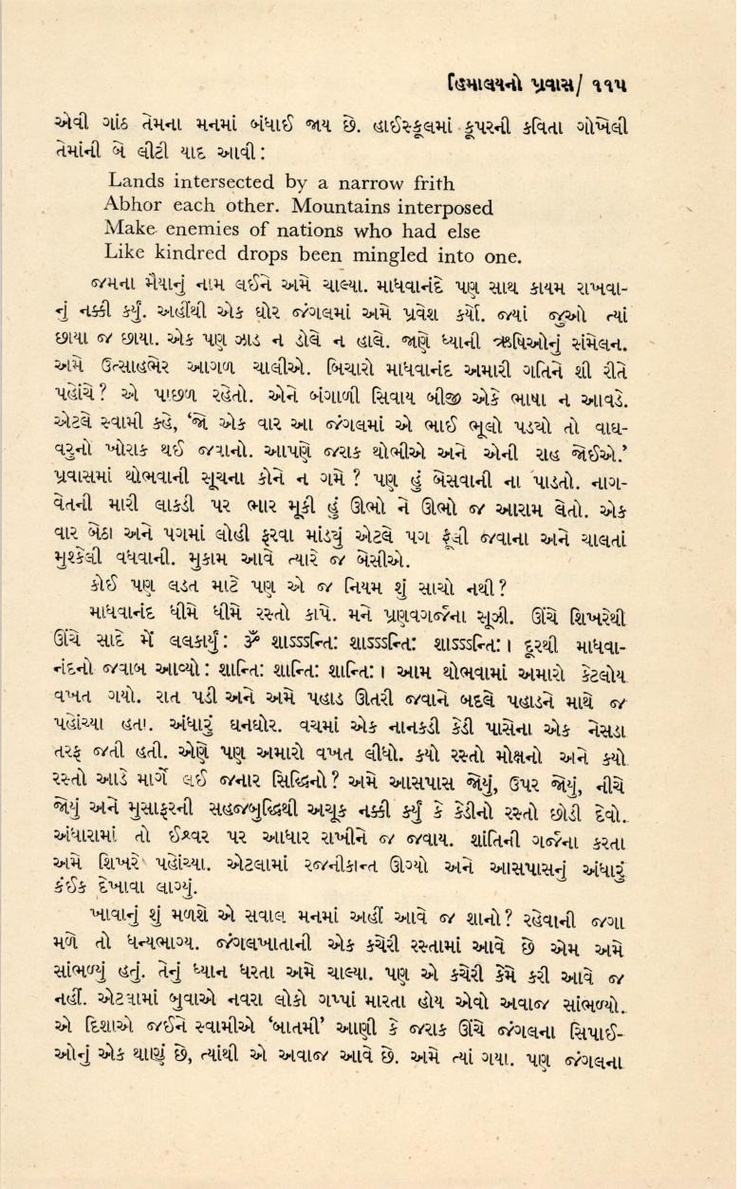 હિમાલયનો પ્રવાસ/ ૧૧૫
એવી ગાંઠ તેમના મનમાં બંધાઈ જાય છે. હાઈસ્કૂલમાં કૂપરની કવિતા ગોખેલી
તેમાંની બે લીટી યાદ આવી :
Lands intersected by a narrow frith
Abhor each other. Mountains interposed
Make enemies of nations who had else
Like kindred drops been mingled into one.
જમના મૈયાનું નામ લઈને અમે ચાલ્યા. માધવાનંદે પણ સાથ કાયમ રાખવા-
નું નક્કી કર્યું. અહીંથી એક ઘોર જંગલમાં અમે પ્રવેશ કર્યો. જ્યાં જુઓ ત્યાં
છાયા જ છાયા. એક પણ ઝાડ ન ડોલે ન હાલે. જાણે ધ્યાની ઋષિઓનું સંમેલન.
અમે ઉત્સાહભેર આગળ ચાલીએ. બિચારો માધવાનંદ અમારી ગતિને શી રીતે
પહોંચે? એ પાછળ રહેતો. એને બંગાળી સિવાય બીજી એકે ભાષા ન આવડે.
એટલે સ્વામી કહે, ‘જો એક વાર આ જંગલમાં એ ભાઈ ભૂલો પડ્યો તો વાઘ-
વરુનો ખોરાક થઈ જવાનો. આપણે જરાક થોભીએ અને એની રાહ જોઈએ.’
પ્રવાસમાં થોભવાની સૂચના કોને ન ગમે ? પણ હું બેસવાની ના પાડતો. નાગ-
વેતની મારી લાકડી પર ભાર મૂકી હું ઊભો ને ઊભો જ આરામ લેતો. એક
વાર બેઠા અને પગમાં લોહી ફરવા માંડ્યું એટલે પગ ફૂલી જવાના અને ચાલતાં
મુશ્કેલી વધવાની. મુકામ આવે ત્યારે જ બેસીએ.
કોઈ પણ લડત માટે પણ એ જ નિયમ શું સાચો નથી?
માધવાનંદ ધીમે ધીમે રસ્તો કાપે. મને પ્રણવગર્જના સૂઝી. ઊંચે શિખરેથી
ઊંચે સાદે મેં લલકાર્યું : ૐ શાઽઽઽન્તિઃ શાઽઽઽન્તિઃ શાઽઽઽન્તિઃ । દૂરથી માધવા-
નંદનો જવાબ આવ્યો : શાન્તિઃ શાન્તિઃ શાન્તિઃ । આમ થોભવામાં અમારો કેટલોય
વખત ગયો. રાત પડી અને અમે પહાડ ઊતરી જવાને બદલે પહાડને માથે જ
પહોંચ્યા હતા. અંધારું ઘનઘોર. વચમાં એક નાનકડી કેડી પાસેના એક નેસડા
તરફ જતી હતી. એણે પણ અમારો વખત લીધો. કયો રસ્તો મોક્ષનો અને કયો
રસ્તો આડે માર્ગે લઈ જનાર સિદ્ધિનો ? અમે આસપાસ જોયું, ઉપર જોયું, નીચે
જોયું અને મુસાફરની સહજબુદ્ધિથી અચૂક નક્કી કર્યું કે કેડીનો રસ્તો છોડી દેવો.
અંધારામાં તો ઈશ્વર પર આધાર રાખીને જ જવાય. શાંતિની ગર્જના કરતા
અમે શિખરે પહોંચ્યા. એટલામાં રજનીકાન્ત ઊગ્યો અને આસપાસનું અંધારું
કંઈક દેખાવા લાગ્યું.
ખાવાનું શું મળશે એ સવાલ મનમાં અહીં આવે જ શાનો? રહેવાની જગા
મળે તો ધન્યભાગ્ય. જંગલખાતાની એક કચેરી રસ્તામાં આવે છે એમ અમે
સાંભળ્યું હતું. તેનું ધ્યાન ધરતા અમે ચાલ્યા. પણ એ કચેરી કેમે કરી આવે જ
નહીં. એટલામાં બુવાએ નવરા લોકો ગપ્પાં મારતા હોય એવો અવાજ સાંભળ્યો.
એ દિશાએ જઈને સ્વામીએ ‘બાતમી’ આણી કે જરાક ઊંચે જંગલના સિપાઈ-
ઓનું એક થાણું છે, ત્યાંથી એ અવાજ આવે છે. અમે ત્યાં ગયા. પણ જંગલના